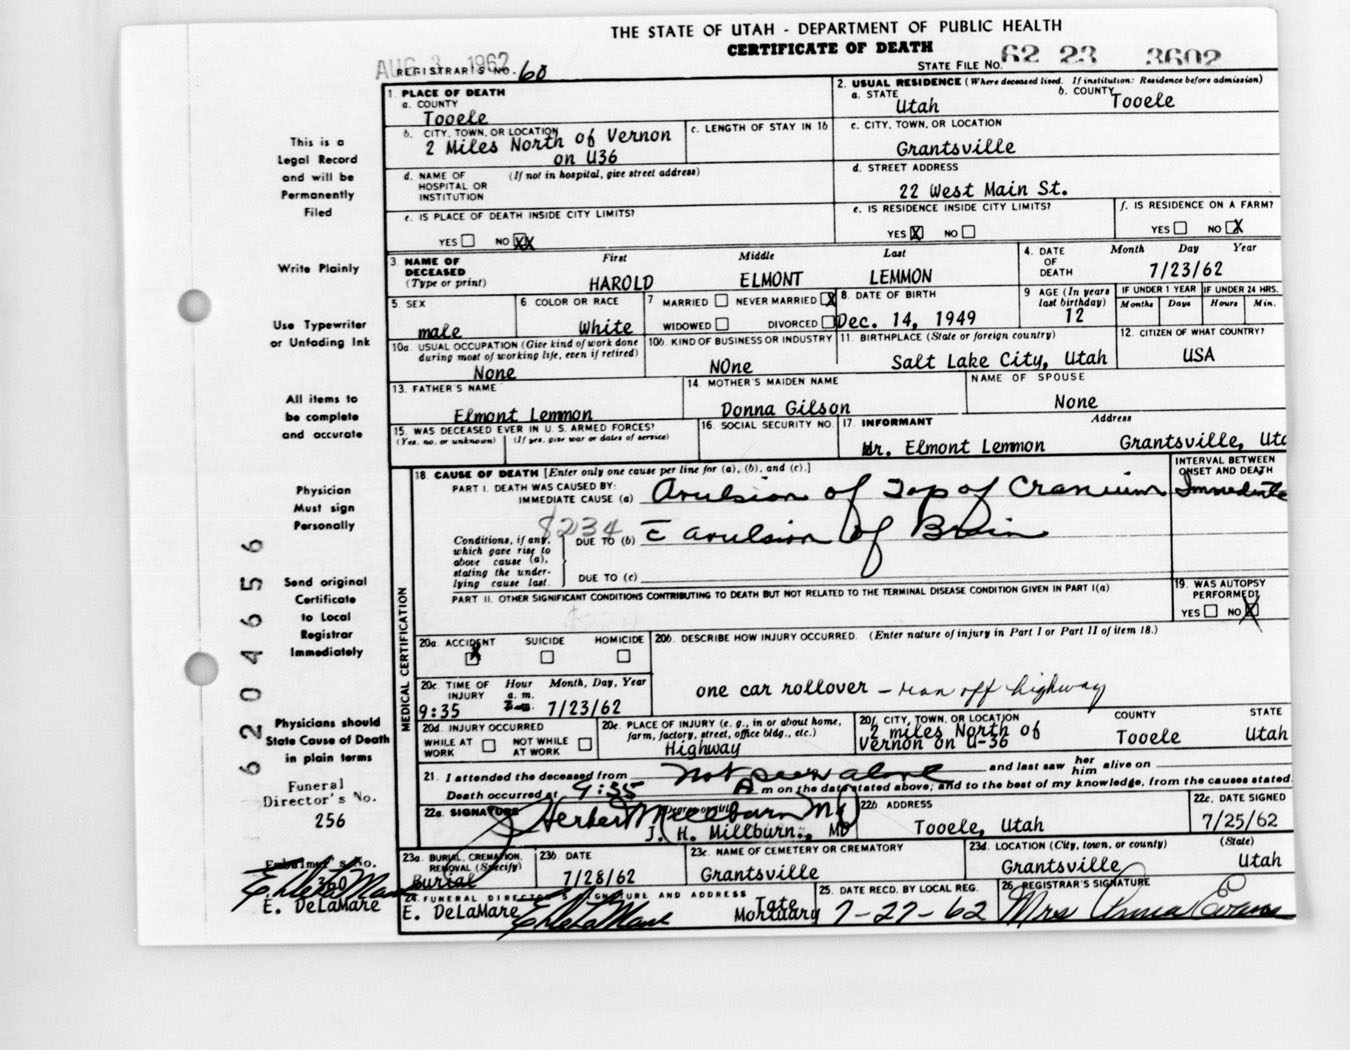 THE STATE OF UTAH - DEPARTMENT OF PUBLIC HEALTH
CERTIFICATE OF DEATH
AUG 3 1962
REGISTRAR'S NO. 60
STATE FILE NO. 62 23 3602
This is a
Legal Record
and will be
Permanently
Filed
Write Plainly
Use Typewriter
or Unfading Ink
All items to
be complete
and accurate
Physician
Must sign
Personally
Send original
Certificate
to Local
Registrar
Immediately
Physicians should
State Cause of Death
in plain terms
Funeral
Director's No.
256
Embalmer's No.
360
E. DeLaMare
62046556
1. PLACE OF DEATH
a. COUNTY
Tooele
b. CITY, TOWN, OR LOCATION
2 Miles North of Vernon
on U36
c. LENGTH OF STAY IN 1b
d. NAME OF HOSPITAL OR INSTITUTION (If not in hospital, give street address)
e. IS PLACE OF DEATH INSIDE CITY LIMITS?
YES NO XX
2. USUAL RESIDENCE (Where deceased lived. If institution: Residence before admission)
a. STATE Utah
b. COUNTY Tooele
c. CITY, TOWN, OR LOCATION
Grantsville
d. STREET ADDRESS
22 West Main St.
e. IS RESIDENCE INSIDE CITY LIMITS?
YES X NO
f. IS RESIDENCE ON A FARM?
YES NO X
3 NAME OF DECEASED (Type or print)
First Middle Last
HAROLD ELMONT LEMMON
4. DATE OF DEATH
Month Day Year
7/23/62
5. SEX
male
6 COLOR OR RACE
White
7 MARRIED NEVER MARRIED X
WIDOWED DIVORCED
8. DATE OF BIRTH
Dec. 14, 1949
9 AGE (In years last birthday)
12
IF UNDER 1 YEAR
Months Days
IF UNDER 24 HRS.
Hours Min.
10a. USUAL OCCUPATION (Give kind of work done during most of working life, even if retired)
None
10b. KIND OF BUSINESS OR INDUSTRY
NOne
11. BIRTHPLACE (State or foreign country)
Salt Lake City, Utah
12. CITIZEN OF WHAT COUNTRY?
USA
13. FATHER'S NAME
Elmont Lemmon
14. MOTHER'S MAIDEN NAME
Donna Gilson
NAME OF SPOUSE
None
15. WAS DECEASED EVER IN U. S. ARMED FORCES?
(Yes, no, or unknown) (If yes, give war or dates of service)
16. SOCIAL SECURITY NO.
17. INFORMANT Address
Mr. Elmont Lemmon Grantsville, Uta
MEDICAL CERTIFICATION
18. CAUSE OF DEATH [Enter only one cause per line for (a), (b), and (c).]
INTERVAL BETWEEN ONSET AND DEATH
PART I. DEATH WAS CAUSED BY:
IMMEDIATE CAUSE (a) Avulsion of Top of Cranium Immediate
8234
Conditions, if any, which gave rise to above cause (a), stating the underlying cause last.
DUE TO (b) c̄ avulsion of Brain
DUE TO (c)
PART II. OTHER SIGNIFICANT CONDITIONS CONTRIBUTING TO DEATH BUT NOT RELATED TO THE TERMINAL DISEASE CONDITION GIVEN IN PART I(a)
19. WAS AUTOPSY PERFORMED?
YES NO X
20a. ACCIDENT SUICIDE HOMICIDE
X
20b. DESCRIBE HOW INJURY OCCURRED. (Enter nature of injury in Part I or Part II of item 18.)
one car rollover - ran off highway
20c. TIME OF INJURY Hour Month, Day, Year
a. m.
9:35 7/23/62
20d. INJURY OCCURRED
WHILE AT WORK NOT WHILE AT WORK
20e. PLACE OF INJURY (e. g., in or about home, farm, factory, street, office bldg., etc.)
Highway
20f. CITY, TOWN, OR LOCATION COUNTY STATE
2 miles North of
Vernon on U-36 Tooele Utah
21. I attended the deceased from not seen alive and last saw her him alive on
Death occurred at 9:35 A m on the date stated above; and to the best of my knowledge, from the causes stated.
22a. SIGNATURE (Degree or title)
Herbert Millburn MD
J. H. Millburn., MD
22b. ADDRESS
Tooele, Utah
22c. DATE SIGNED
7/25/62
23a. BURIAL, CREMATION, REMOVAL (Specify)
Burial
23b. DATE
7/28/62
23c. NAME OF CEMETERY OR CREMATORY
Grantsville
23d. LOCATION (City, town, or county) (State)
Grantsville Utah
24. FUNERAL DIRECTOR'S SIGNATURE AND ADDRESS
E. DeLaMare Tate Mortuary
25. DATE RECD. BY LOCAL REG.
7-27-62
26. REGISTRAR'S SIGNATURE
Mrs Anna Evans